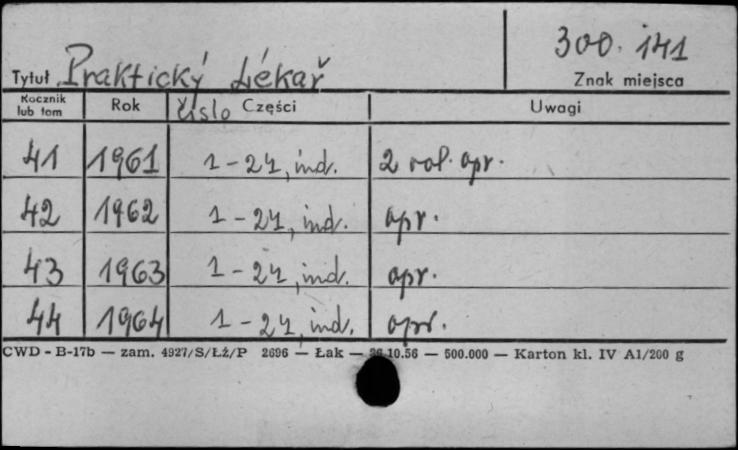 300.141
Tytuł Praktický Lékař
Znak miejsca
Rocznik lub tom Rok číslo Części Uwagi
41 1961 1-24, ind. 2 vol. opr.
42 1962 1-24, ind. opr.
43 1963 1-24, ind. opr.
44 1964 1-24, ind. opr.
CWD - B-17b — zam. 4927/S/ŁŻ/P 2696 — Łak — 26.10.56 — 500.000 — Karton kl. IV A1/200 g